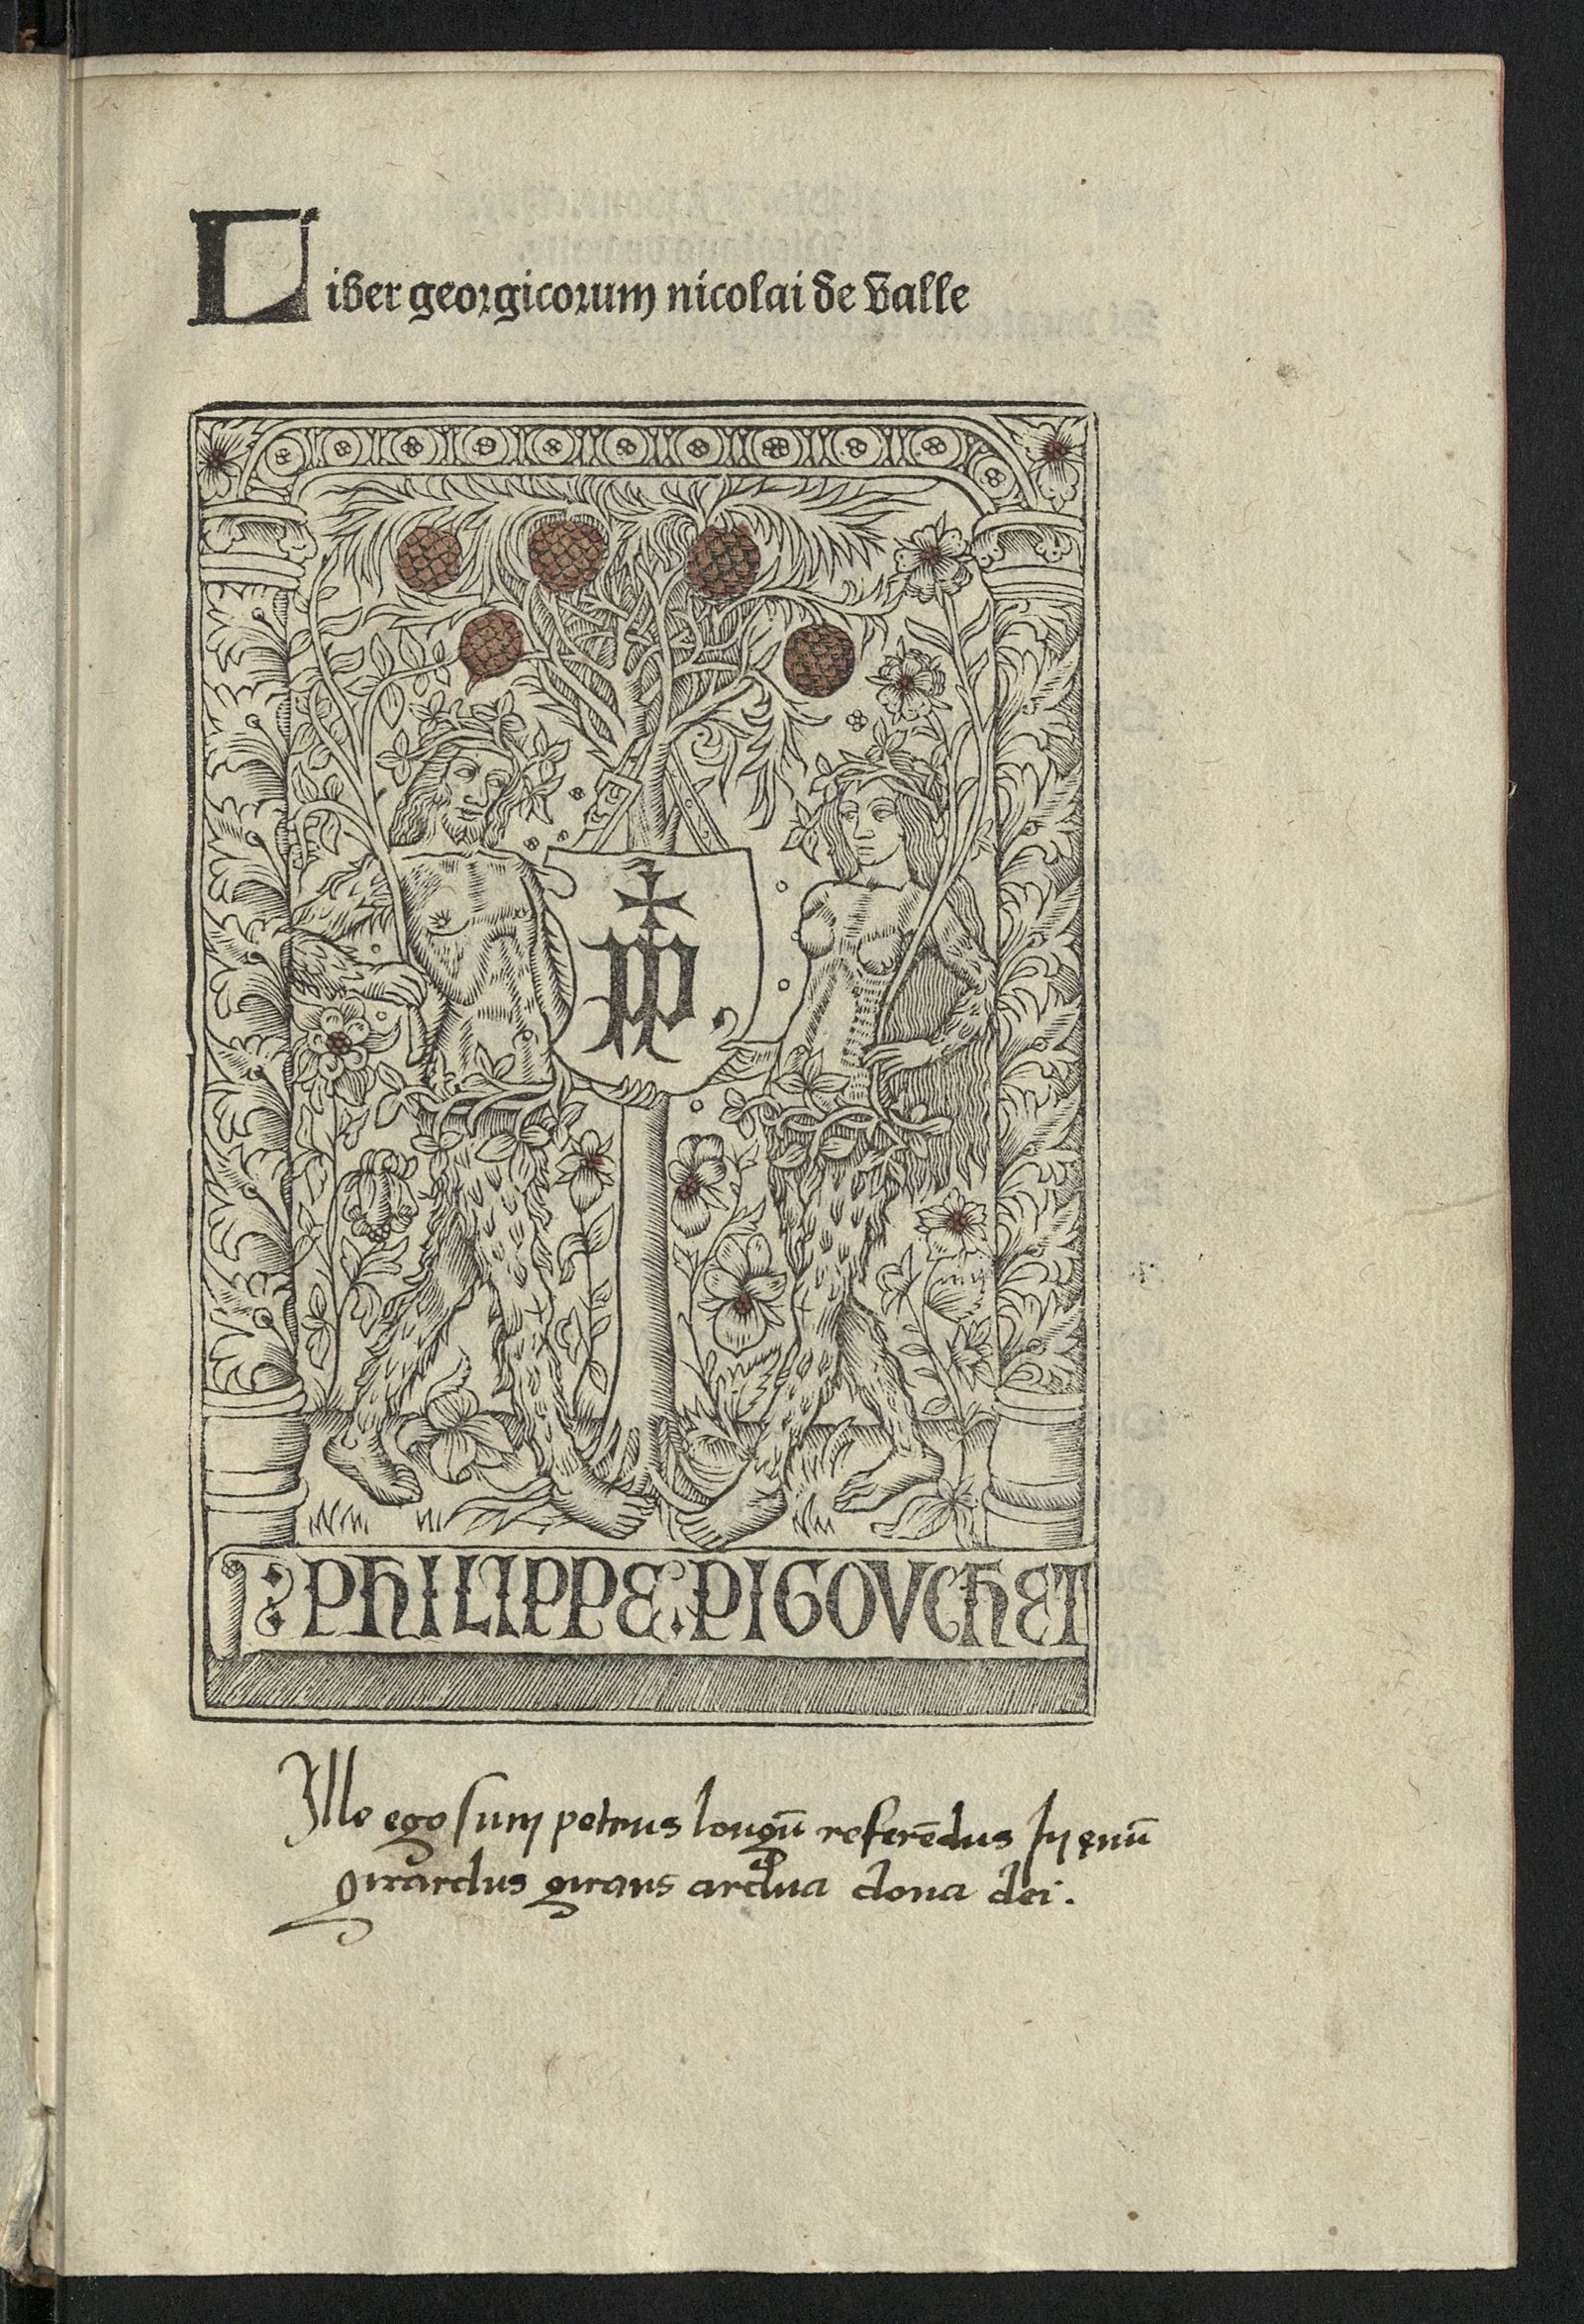 Liber georgicorum nicolai de valle
pp
PHILIPPE PIGOVCHET
Ille ego sum petrus longū referēdus In ęuū
girardus girans ardua dona dei.